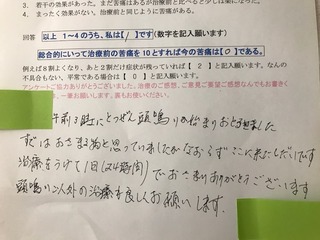 3. 若干の効果があった。まだ苦痛はあるが治療前と比べると少しは楽になった。
4. まったく効果がない、治療前と同じように苦痛がある。
回答 以上 1~4のうち、私は【 1 】です(数字を記入願います)
総合的にいって治療前の苦痛を10とすれば今の苦痛は【 0 】である。
例えば8割よくなり、あと2割だけ症状が残っていれば【 2 】と記入願います。なんの
不具合もない、平常である場合は【 0 】と記入願います。
アンケートご協力ありがとうございました。治療のご感想、ご意見ご要望ご感想なんでもお書きく
午前3時にとつぜん頭鳴りが始まりおどろきました
すぐはおさまる物と思っていましたがなおらずここに来たしだいです
治療をうけて1日(24時間)でおさまりありがとうございます
頭鳴り以外の治療も良しくお願いします.